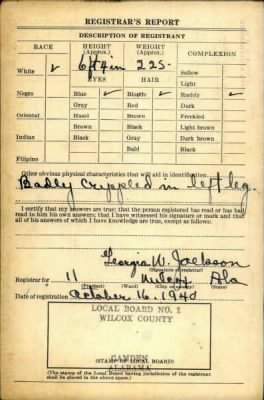 REGISTRAR'S REPORT
DESCRIPTION OF REGISTRANT
RACE HEIGHT (Approx.) WEIGHT (Approx.) COMPLEXION
White ✓ 6 ft 4 in 225- Sallow
EYES HAIR Light
Negro Blue ✓ Blonde ✓ Ruddy ✓
Gray Red Dark
Oriental Hazel Brown Freckled
Brown Black Light brown
Indian Black Gray Dark brown
Bald Black
Filipino
Other obvious physical characteristics that will aid in identification
Badly crippled in left leg.
I certify that my answers are true; that the person registered has read or has had
read to him his own answers; that I have witnessed his signature or mark and that
all of his answers of which I have knowledge are true, except as follows:
Georgia W. Jackson
(Signature of registrar)
Registrar for 11 Wilcox Ala
(Precinct) (Ward) (City or county) (State)
Date of registration October 16, 1940
LOCAL BOARD NO. 1
WILCOX COUNTY
CAMDEN
(STAMP OF LOCAL BOARD)
ALABAMA
(The stamp of the Local Board having jurisdiction of the registrant
shall be placed in the above space.)